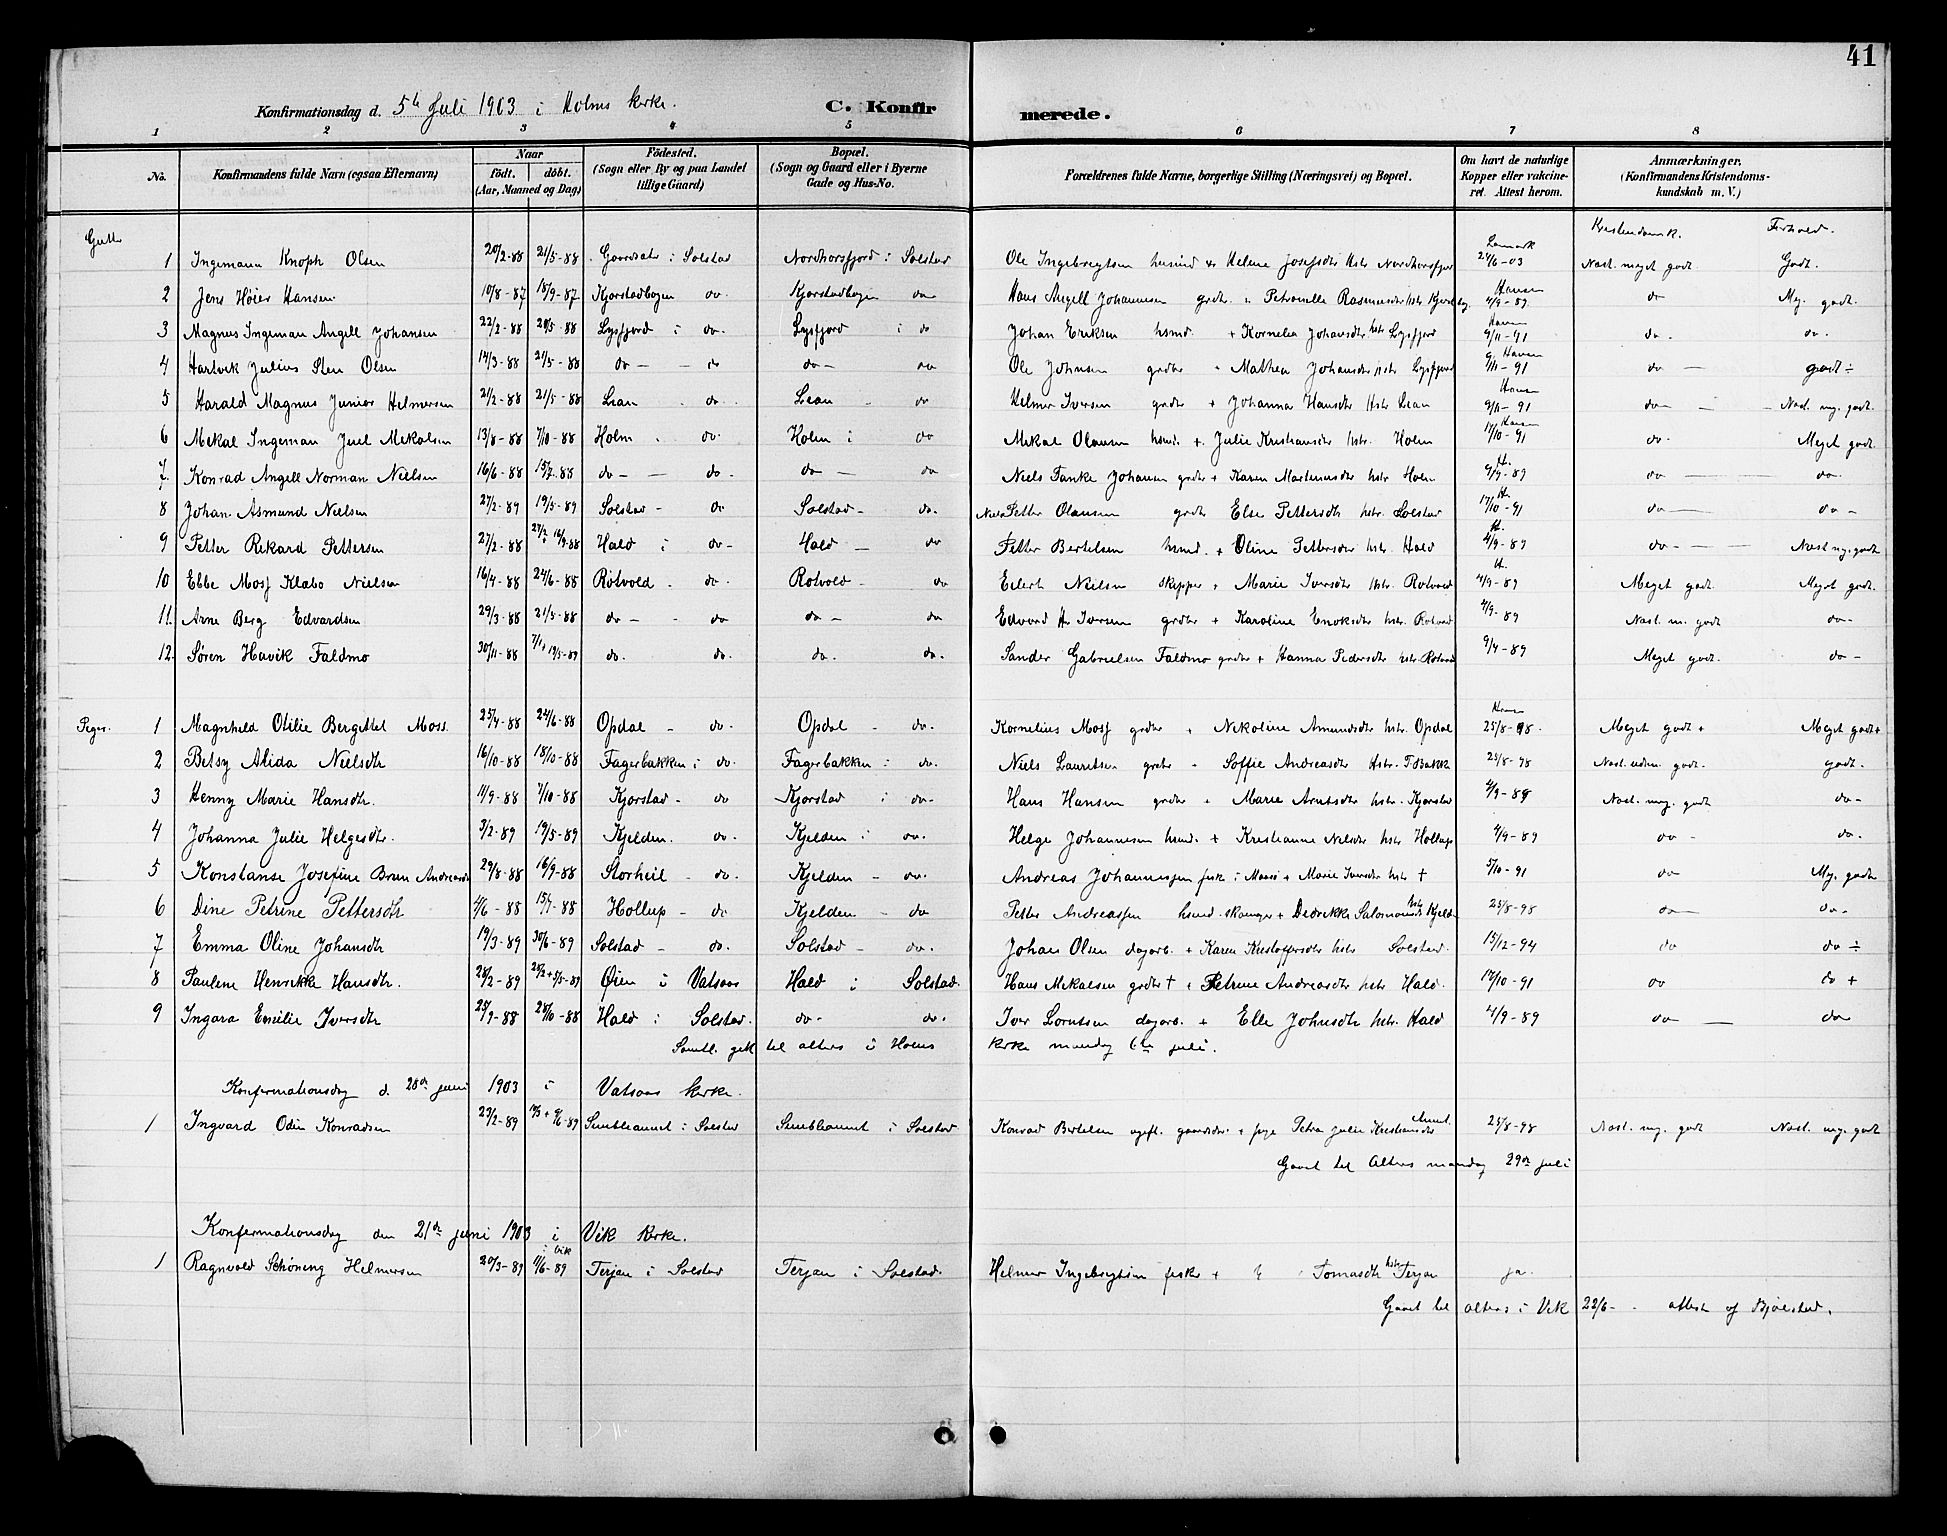 41
Konfirmationsdag d. 5te Juli 1903 i Holms kirke. C. Konfirmerede.
1 2 3 4 5 6 7 8
No. Konfirmandens fulde Navn (ogsaa Efternavn) Naar födt. döbt. (Aar, Maaned og Dag) Födested. (Sogn eller By og paa Landet tillige Gaard) Bopæl. (Sogn og Gaard eller i Byerne Gade og Hus-No. Forældrenes fulde Navne, borgerlige Stilling (Næringsvei) og Bopæl. Om havt de naturlige Kopper eller vakcineret. Attest herom. Anmærkninger, (Konfirmandens Kristendomskundskab m. V.)
Gutter Kristendomsk. Forhold.
1 Ingemann Knoph Olsen 20/2-88 21/5-88 i Solstad Nordhorsfjord i Solstad Ole Ingebrigtsen husmd Helene Josefsdtr Hstr Nordhorsfjor 24/6-03 Nasl. meget godt Godt.
2 Jens Høier Hansen 10/8-87 18/9-87 Kjorstadbogen do. Kjorstadbogen do Hans Angell Johannesen grdbr Petronelle Rasmusdtr hstr Hansen 4/9-89 do My. godt.
3 Magnus Ingeman Angell Johansen 22/2-88 20/5-88 Lysfjord i do. Lysfjord i do Johan Eriksen hsmd. + Kornelia Johansdtr hstr Lysfjord 9/11-91 do. do.
4 Hartvik Julius Sten Olsen 14/3-88 21/5-88 do - do do - do Ole Johnsen grdbr + Mathea Johansdtr hstr Lysfjord 9/11-91 do godt ÷
5 Harald Magnus Junior Helmersen 21/2-88 21/5-88 Lian do. Lian - do Helmer Iversen grdbr + Johanna Hansdtr Hstr Lian 9/11-91 do - Nasl. my. godt
6 Mikal Ingeman Juel Mikalsen 13/8-88 7/10-88 Holm i do. Holm i do Mikal Olausen hsmd. + Julie Kristiansdtr hstr. Holm 17/10-91 do. Meget godt.
7. Konrad Angell Norman Nielsen 16/6-88 15/7-88 do - do. do - do Niels Fanke Johansen grdbr + Karen Martinusdtr hstr Holm 9/9-89 do do.
8 Johan Asmund Nielsen 27/2-89 19/5-89 Solstad - do Solstad - do. Petter Olausen grdbr Else Pettersdtr hstr. Solstad 17/10-91 do do -
9 Petter Rikard Pettersen 27/2-88 Hald i do - Hald - do Petter Bertelsen hsmd. + Oline Pettersdtr hstr. Hald 4/9-89 do Nasl my. godt
10 Ebbe Mosf Klabo Nielsen 16/4-88 24/6-88 Rotvold - do. Rotvold - do Eilert Nielsen skipper + Marie Iversdtr hstr Rotvold 4/9-89 Meget godt. Meget godt.
11. Arne Berg Edvardsen 29/3-88 21/5-88 do - - do do - do Edvard Hr Iversen grdbr + Karoline Enoksdtr hstr. Rotvold 4/9-89 Nasl. m. godt do -
12. Søren Havik Faldmo 30/11-88 do. do. do. do. Sander Gabrielsen Faldmo grdbr + Hanna Pedersdtr hstr Rotvold 9/4-89 Meget godt. do -
Piger. 1 Magnhild Otilie Bergitte Moss. 25/4-88 24/6-88 Opdal - do. Opdal - do. Kornelius Mosf grdbr + Nikoline Amundsdtr hstr Opdal 25/8-98. Meget godt + Meget godt +
2 Betsy Alida Nielsdtr 16/10-88 18/10-88 Fagerbakken i do. Fagerbakken i do. Niels Lauritsen grdbr Soffie Andreasdtr Hstr. F.Bakk 25/8-98 Nasl. udm. godt. godt.
3 Henny Marie Hansdtr. 11/9-88 7/10-88 Kjorstad - do Kjorstad i do. Hans Hansen grdbr + Marie Arntsdtr hstr. Kjorstad 4/9-89 Nasl. my. godt do -
4 Johanna Julie Helgesdtr. 3/2-89 19/5-89 Kjelden. do. Kjelden i do. Helge Johannesen hsmd. + Kristianne Nilsdtr hstr Hollup 4/9-89 do - do.
5 Konstanse Josefine Brun Andreasdtr 29/8-88 16/9-88 Storheil - do. Kjelden - do. Andreas Johannessen fisk i Mosø + Marie Iversdtr hstr + 5/10-91 do My. godt
6 Dine Petrine Pettersdtr 4/6-88 15/7-88 Hollup - do Kjelden - do Petter Andreassen hsmd. + Didrikke Salomonsdtr hstr Kjeld 25/8-98 do do -
7 Emma Oline Johansdtr 19/3-89 30/6-89 Solstad - do. Solstad - do. Johan Olsen dagarb. + Karen Kristoffersdtr hstr Solstad. 15/12-94 do do ÷
8 Pauline Henrikke Hansdtr. 28/2-89 Øien i Vatsaas Hald i Solstad. Hans Mikalsen grdbr + Petrine Andreasdtr hstr Hald. 17/10-91 do do +
9 Ingara Emilie Iversdtr 25/9-88 28/10-88 Hald i Solstad. do - do. Iver Lorntsen dagarb. + Elle Johnsdtr hstr. Hald 4/9-89 do do
Samtl. gik til alters i Holms kirke mandag 6te juli.
Konfirmationsdag d. 28de juni 1903 i Vatsaas kirke.
1 Ingvard Odin Konradsen 23/2-89 i Solstad i Solstad Konrad Bertelsen ugift + pige Petra Julie Kristiansdtr 25/8-98 Nasl. my. godt Nasl. my. godt
Gaaet til Alters mandag 29de juli
Konfirmationsdag den 21de juni 1903 i Vik kirke.
1 Ragnvald Schöning Helmersen 20/3-89 i Vik 11/6-89 Terjan i Solstad Terjan i Solstad. Helmer Ingebrigtsen fisker + Tomasdtr hstr Terjan ja.
Gaaet til alters i Vik 22/6 - attest af Bjölstad.